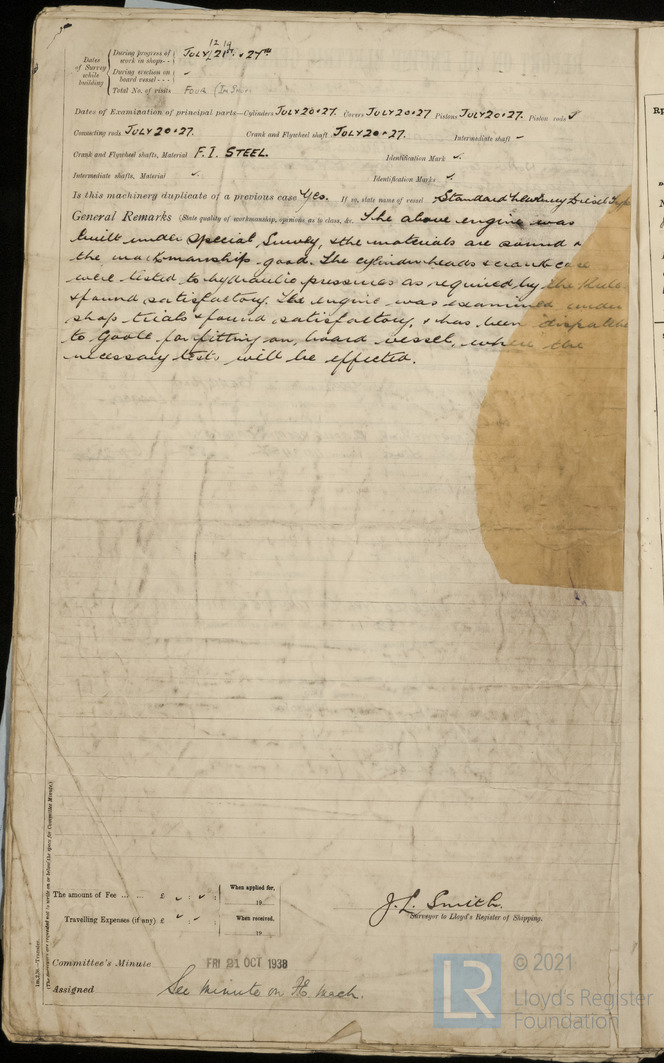 Dates of Survey while building
During progress of work in shops - - JULY 12 14 21st. & 27TH
During erection on board vessel - - -
Total No. of visits FOUR
Dates of Examination of principal parts—Cylinders JULY 20 & 27 Covers JULY 20 & 27 Pistons JULY 20 & 27. Piston rods ✓
Connecting rods JULY 20 & 27. Crank and Flywheel shaft JULY 20 & 27. Intermediate shaft -
Crank and Flywheel shafts, Material F. I. STEEL. Identification Mark ✓.
Intermediate shafts, Material ✓. Identification Marks ✓.
Is this machinery duplicate of a previous case Yes. If so, state name of vessel Standard Diesel
General Remarks (State quality of workmanship, opinions as to class, &c. The above engine was
built under Special Survey, & the materials are sound &
the workmanship good. The cylinder heads & crank case
were tested to hydraulic pressures as required by the Rules
& found satisfactory. The engine was examined under
shop trials & found satisfactory, & has been dispatched
to Goole for fitting on board vessel, where the
necessary tests will be effected.
The amount of Fee ... ... £ ✓ : ✓ : When applied for, 19
Travelling Expenses (if any) £ ✓ : ✓ : When received, 19
J. L. Smith.
Surveyor to Lloyd's Register of Shipping.
Committee's Minute FRI 21 OCT 1938
Assigned See minute on F.E. mach.
(The Surveyors are requested not to write on or below the space for Committee Minute.)
© 2021
LR
Lloyd's Register
Foundation
Rp